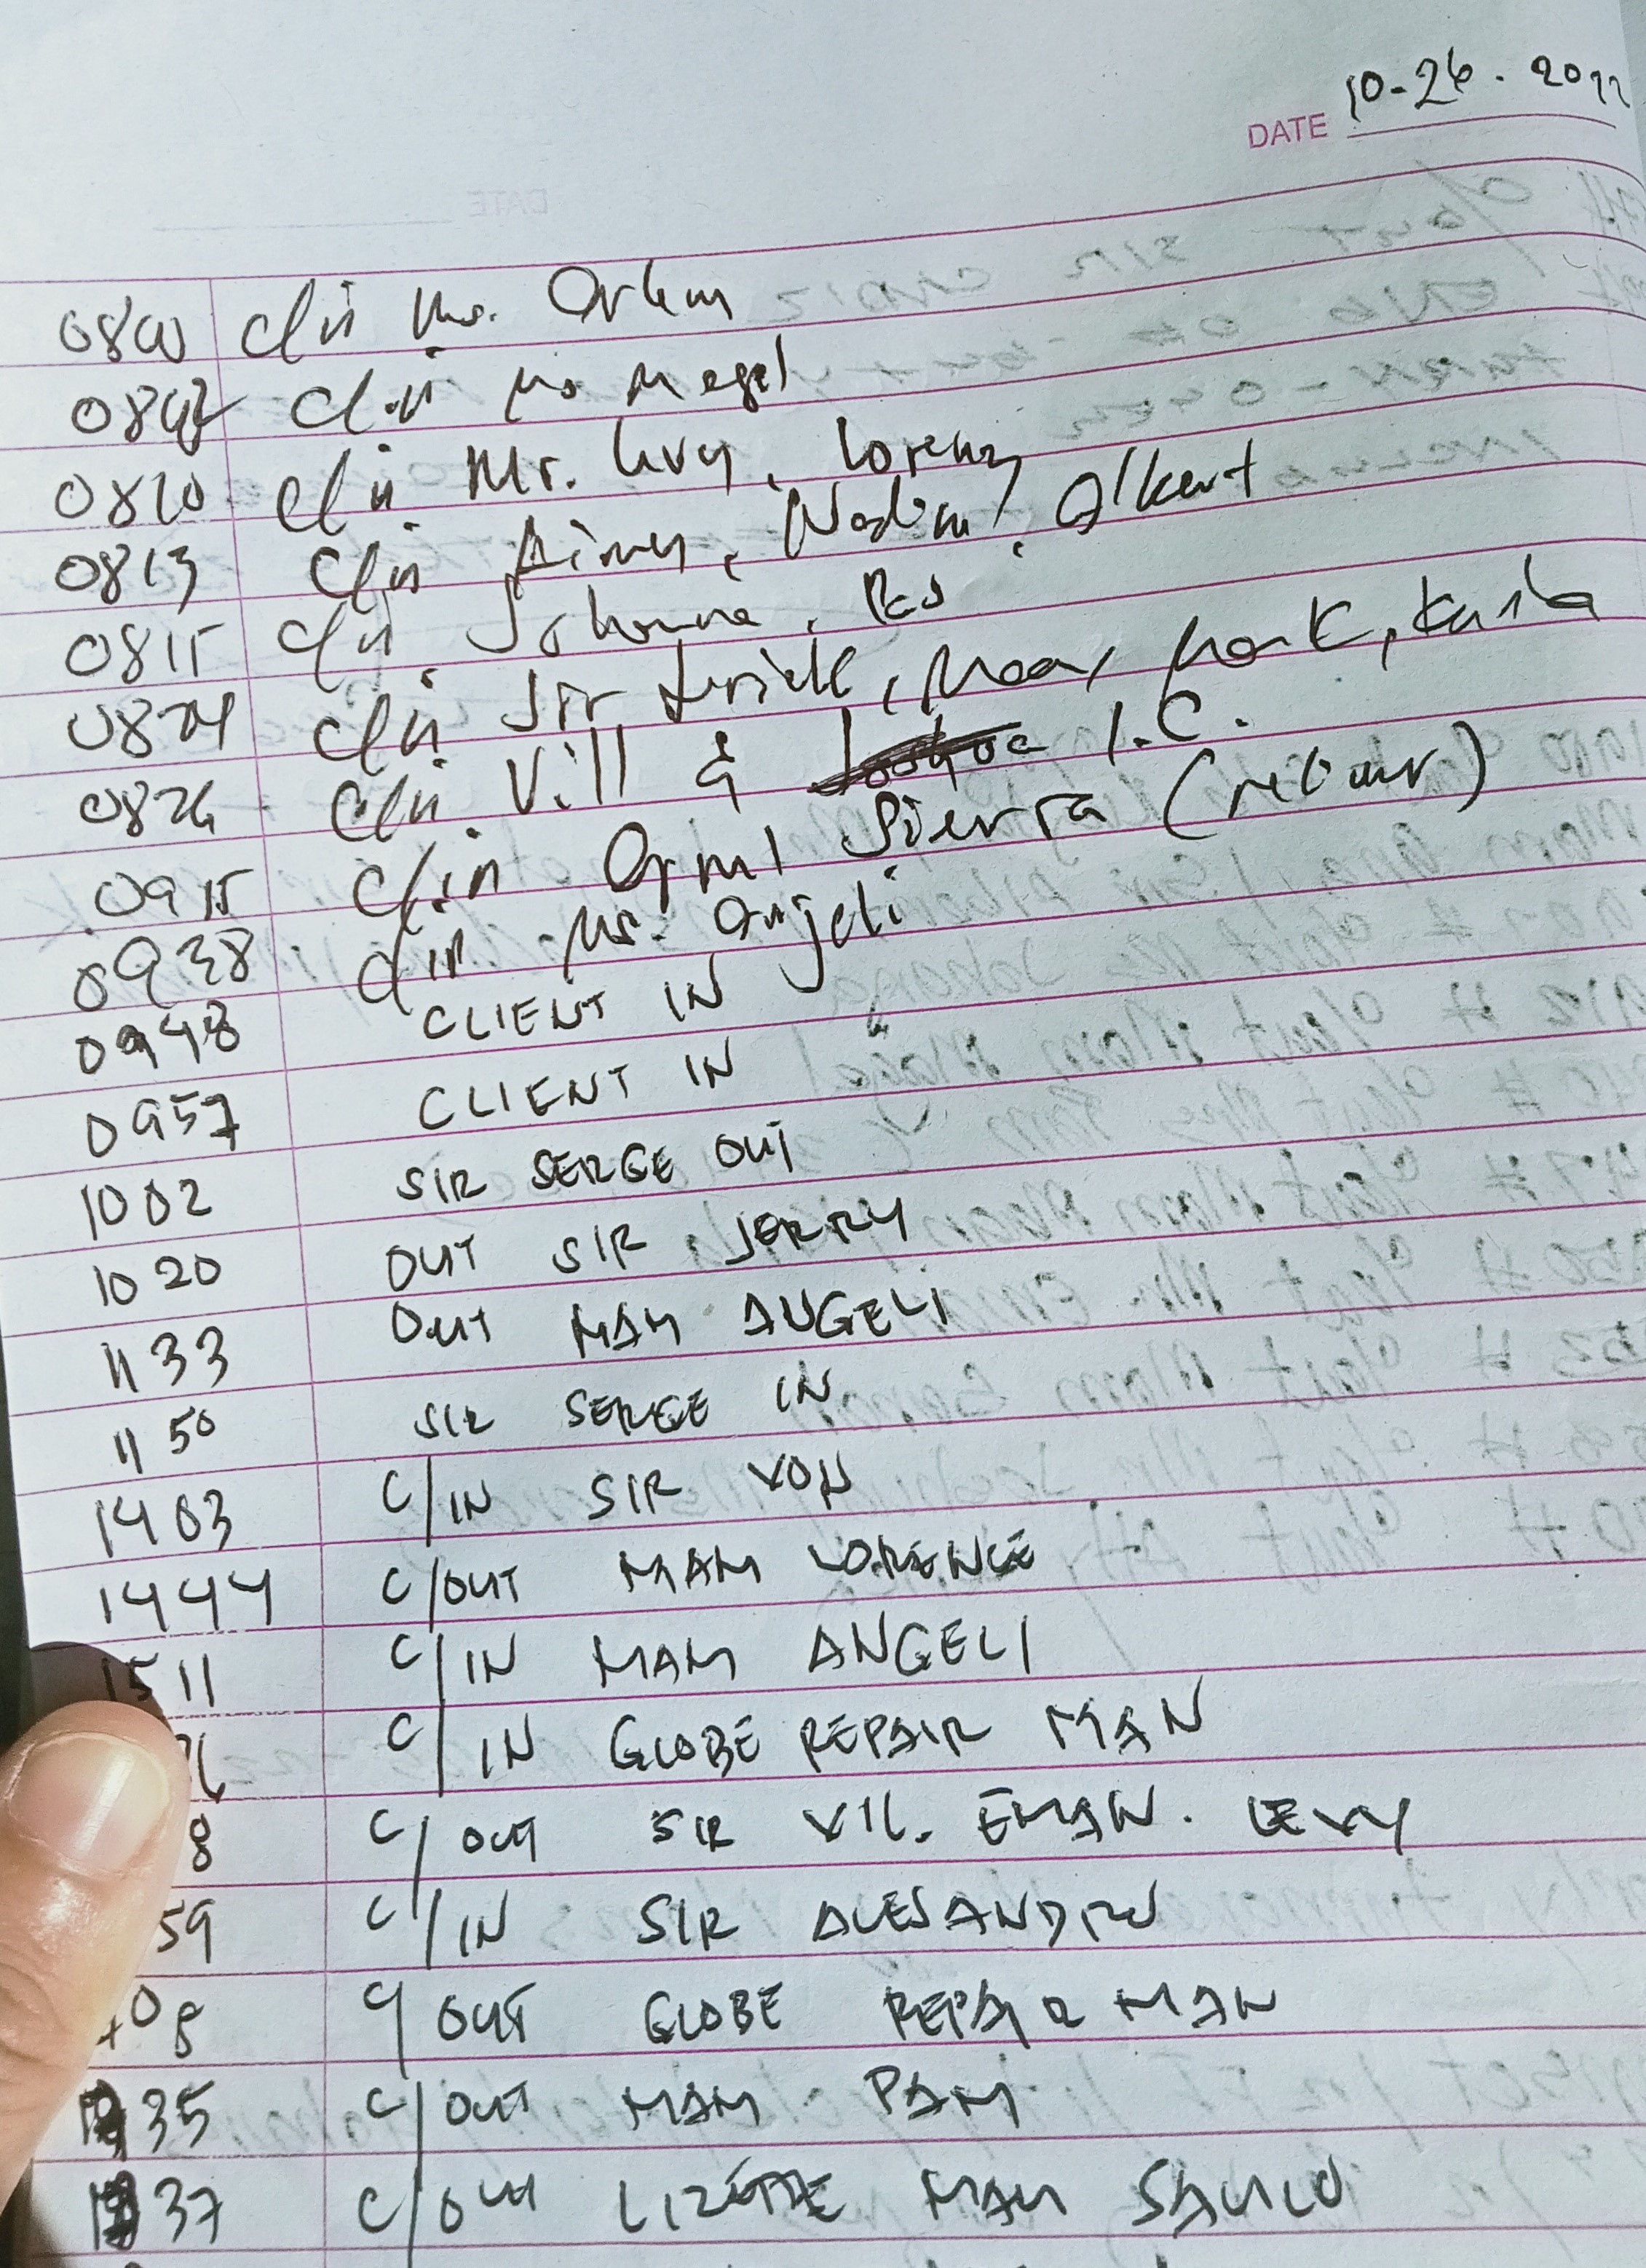 DATE 10-26-2022
0800 C/in Ms.
C/in Ms Megel
0810 C/in Mr. Levy, Lorenz
0813 C/in Aimee, Nadine, Albert
0815 C/in Johanna,
0824 C/in Sir, Maan, Mark, Karla
0826 C/in Vill & I.C.
0915 C/in Sierra (retour)
0938 C/in Ms. Angeli
0948 CLIENT IN
0957 CLIENT IN
1002 SIR SERGE OUT
1020 OUT SIR JERRY
1133 OUT MAM ANGELI
1150 SIR SERGE IN
1403 C/IN SIR VON
1444 C/OUT MAM LORENCE
1511 C/IN MAM ANGELI
C/IN GLOBE REPAIR MAN
8 C/OUT SIR VIL. EMAN. LEVY
59 C/IN SIR ALESANDRO
08 C/OUT GLOBE REPAIR MAN
35 C/OUT MAM PAM
37 C/OUT LIZETTE MAM SAULO